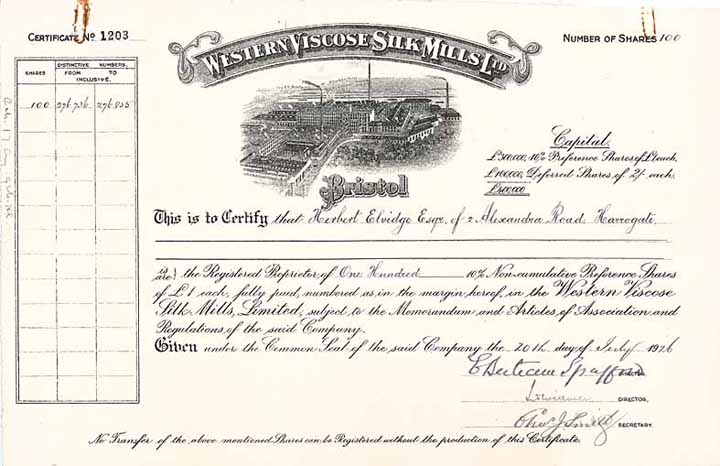 CERTIFICATE No 1203
NUMBER OF SHARES 100
WESTERN VISCOSE SILK MILLS LTD
Bristol
SHARES
DISTINCTIVE NUMBERS,
FROM TO
INCLUSIVE.
100 276736 276835
Capital
£300,000, 10% Preference Shares of £1 each.
£100,000, Deferred Shares of 2/- each.
This is to Certify that Herbert Elvidge Esqr. of 2 Alexandra Road Harrogate.
is/are} the Registered Proprietor of One Hundred 10% Non-cumulative Preference Shares
of £1 each, fully paid, numbered as in the margin hereof, in the Western Viscose
Silk Mills, Limited, subject to the Memorandum and Articles of Association and
Regulations of the said Company.
Given under the Common Seal of the said Company the 20th day of July 1926
E Bertram Spafford
DIRECTOR.
DIRECTOR,
Chas J Smith
SECRETARY.
No Transfer of the above mentioned Shares can be Registered without the production of this Certificate.